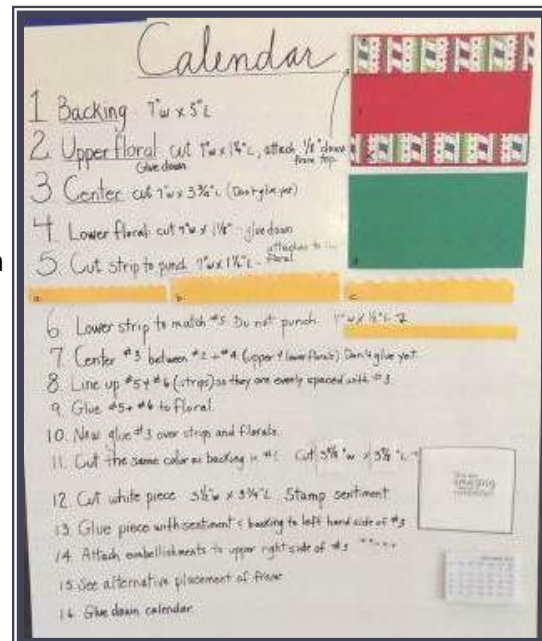 Calendar
1 Backing 7"w x 5"L
2 Upper floral cut 7"w x L, attach 1/8" down
Glue down from top.
3 Center cut 7"w x 3 L (Don't glue yet)
4. Lower floral: cut 7"w x 1 - glue down
5. Cut strip to punch 7"w x L - attaches to floral
a. b. c.
6. Lower strip to match #5. Do not punch.
7. Center #3 between #2 + #4 (upper & lower florals) Don't glue yet.
8. Line up #5 + #6 (strips) so they are evenly spaced with #3
9. Glue #5 + #6 to floral.
10. Now glue #3 over strips and florals.
11. Cut the same color as backing in #1. Cut
12. Cut white piece Stamp sentiment
13. Glue piece with sentiment & backing to left hand side of #3
14. Attach embellishments to upper right side of #3
15. See alternative placement of frame
16. Glue down calendar
you are
amazing